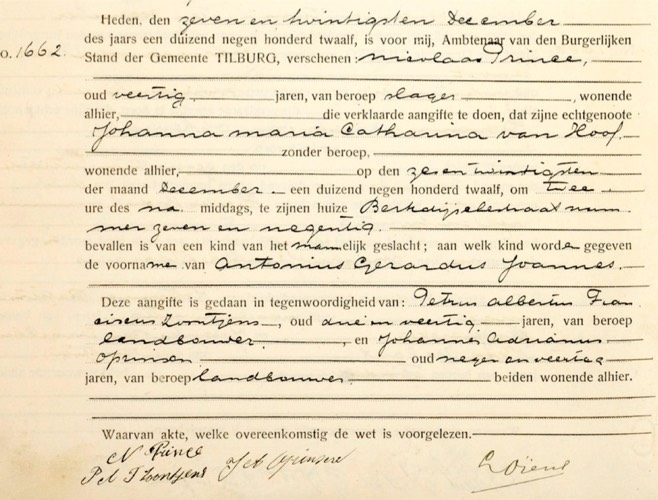 Heden, den zeven en twintigsten December
des jaars een duizend negen honderd twaalf, is voor mij, Ambtenaar van den Burgerlijken
o. 1662. Stand der Gemeente TILBURG, verschenen: Nicolaas Prince,
oud veertig jaren, van beroep slager, wonende
alhier, die verklaarde aangifte te doen, dat zijne echtgenoote
Johanna Maria Catharina van Hoof.
zonder beroep,
wonende alhier, op den zes en twintigsten
der maand December een duizend negen honderd twaalf, om twee
ure des na middags, te zijnen huize Berkdijkschestraat num
mer zeven en negentig.
bevallen is van een kind van het mannelijk geslacht; aan welk kind worden gegeven
de voorname van Antonius Gerardus Joannes.
Deze aangifte is gedaan in tegenwoordigheid van: Petrus Albertus Fran
ciscus Zoontjens, oud drie en veertig jaren, van beroep
landbouwer, en Johannes Adrianus
Oprinsen oud negen en veertig
jaren, van beroep landbouwer beiden wonende alhier.
Waarvan akte, welke overeenkomstig de wet is voorgelezen.
N Prince
P A F Zoontjens J A Oprinsen